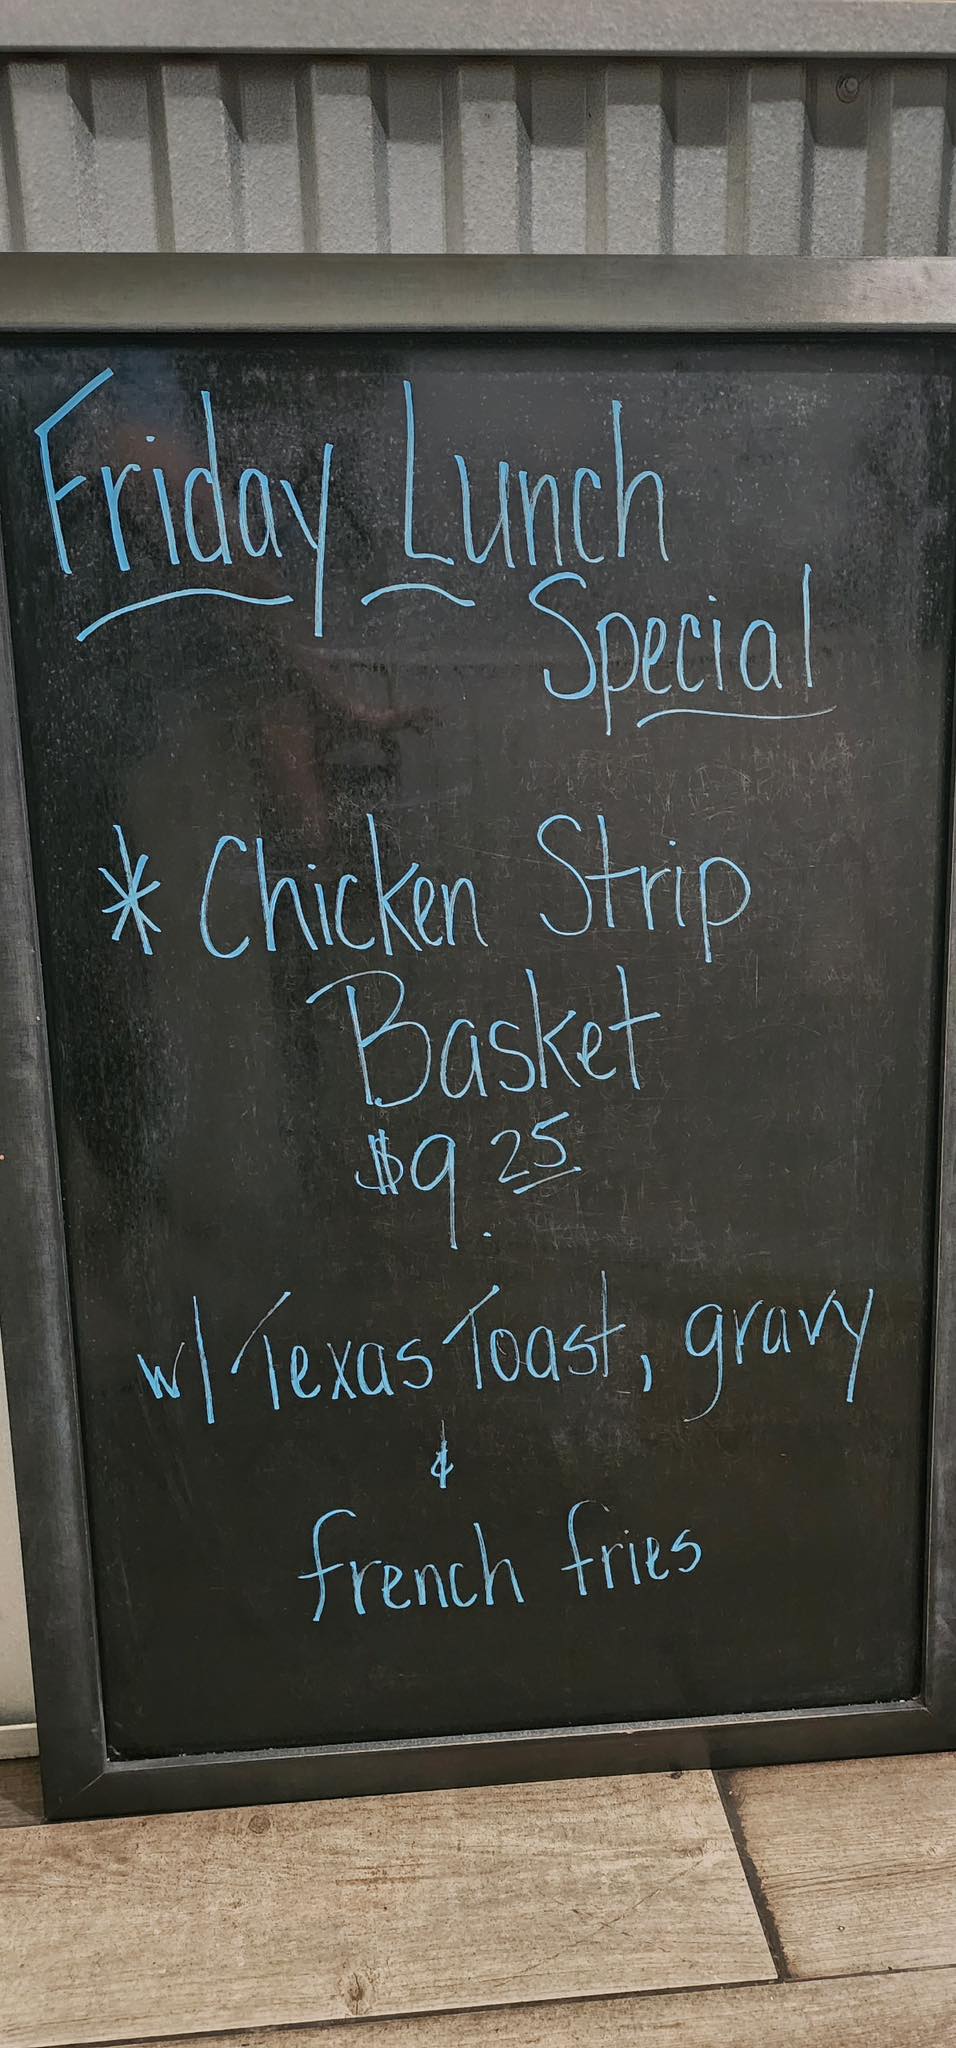 Friday Lunch
Special
* Chicken Strip
Basket
$9.25
w/ Texas Toast, gravy
&
french fries